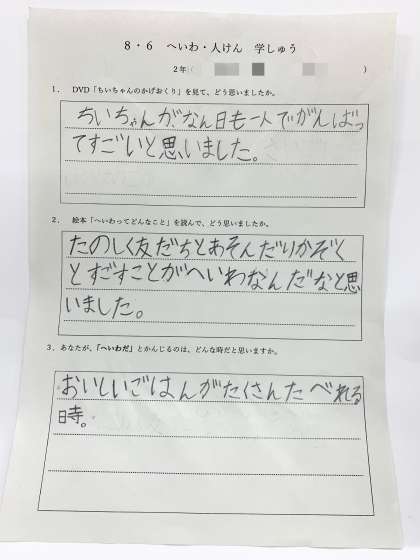 8・6 へいわ・人けん 学しゅう
2年( )
1. DVD「ちいちゃんのかげおくり」を見て、どう思いましたか。
ちいちゃんが、なん日も一人でがんばっ
てすごいと思いました。
2. 絵本「へいわってどんなこと」を読んで、どう思いましたか。
たのしく友だちとあそんだりかぞく
とすごすことがへいわなんだなと思
いました。
3. あなたが、「へいわだ」とかんじるのは、どんな時だと思いますか。
おいしいごはんがたくさんたべれる
時。